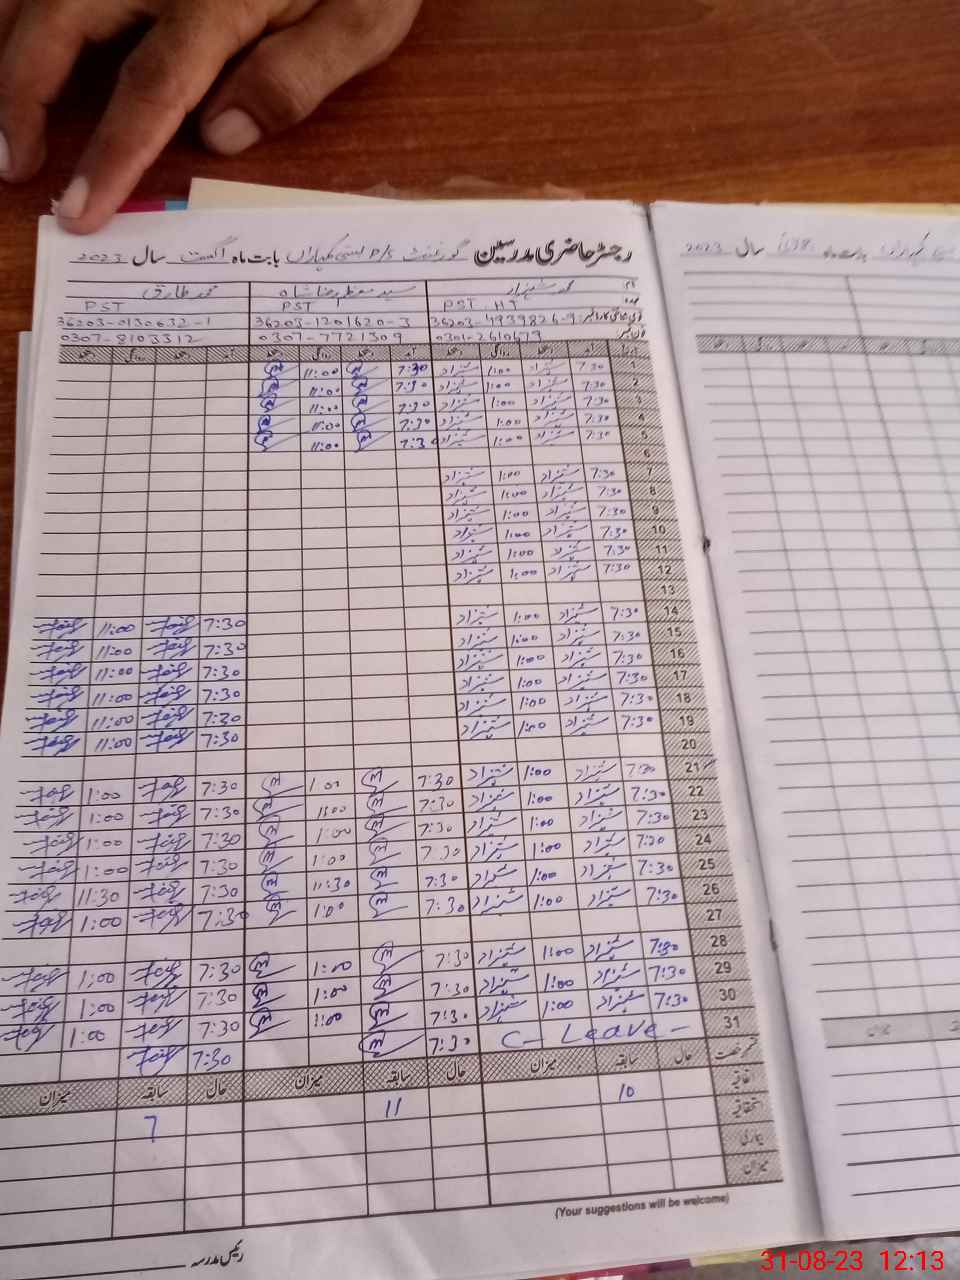 رجسٹر حاضری مدرسین گورنمنٹ P/S بستی بابت ماہ اگست سال 2023
نام محمد شہزاد سید معظم رضا شاہ محمد طارق
عہدہ PST HT PST PST
قومی شناختی کارڈ نمبر: 36203-4939826-9 36203-1201620-3 36203-0130632-1
فون نمبر: 0301-2610679 0307-7721309 0307-8103312
تاریخ آمد دستخط روانگی دستخط آمد دستخط روانگی دستخط آمد دستخط روانگی دستخط
1 7:30 شہزاد 1:00 شہزاد 7:30 11:00
2 7:30 شہزاد 1:00 شہزاد 7:30 11:00
3 7:30 شہزاد 1:00 شہزاد 7:30 11:00
4 7:30 شہزاد 1:00 شہزاد 7:30 11:00
5 7:30 شہزاد 1:00 شہزاد 7:30 11:00
6
7 7:30 شہزاد 1:00 شہزاد
8 7:30 شہزاد 1:00 شہزاد
9 7:30 شہزاد 1:00 شہزاد
10 7:30 شہزاد 1:00 شہزاد
11 7:30 شہزاد 1:00 شہزاد
12 7:30 شہزاد 1:00 شہزاد
13
14 7:30 شہزاد 1:00 شہزاد 7:30 11:00
15 7:30 شہزاد 1:00 شہزاد 7:30 11:00
16 7:30 شہزاد 1:00 شہزاد 7:30 11:00
17 7:30 شہزاد 1:00 شہزاد 7:30 11:00
18 7:30 شہزاد 1:00 شہزاد 7:30 11:00
19 7:30 شہزاد 1:00 شہزاد 7:30 11:00
20
21 7:30 شہزاد 1:00 شہزاد 7:30 1:00 7:30 1:00
22 7:30 شہزاد 1:00 شہزاد 7:30 1:00 7:30 1:00
23 7:30 شہزاد 1:00 شہزاد 7:30 1:00 7:30 1:00
24 7:30 شہزاد 1:00 شہزاد 7:30 1:00 7:30 1:00
25 7:30 شہزاد 1:00 شہزاد 7:30 11:30 7:30 11:30
26 7:30 شہزاد 1:00 شہزاد 7:30 1:00 7:30 1:00
27
28 7:30 شہزاد 1:00 شہزاد 7:30 1:00 7:30 1:00
29 7:30 شہزاد 1:00 شہزاد 7:30 1:00 7:30 1:00
30 7:30 شہزاد 1:00 شہزاد 7:30 1:00 7:30 1:00
31 C- Leave - 7:30 7:30
قسم رخصت حال سابقہ میزان حال سابقہ میزان حال سابقہ میزان
اتفاقیہ 10 11 7
استحقاقیہ
بیماری
میزان
(Your suggestions will be welcome)
رئیس مدرسہ
بابت ماہ سال 2023
میزان
31-08-23 12:13